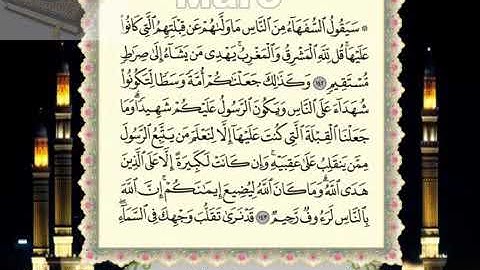 Maro
۞ سَيَقُولُ السُّفَهَاءُ مِنَ النَّاسِ مَا وَلَّىٰهُمْ عَن قِبْلَتِهِمُ الَّتِي كَانُوا
عَلَيْهَا ۚ قُل لِّلَّهِ الْمَشْرِقُ وَالْمَغْرِبُ ۚ يَهْدِي مَن يَشَاءُ إِلَىٰ صِرَاطٍ
مُّسْتَقِيمٍ ١٤٢ وَكَذَٰلِكَ جَعَلْنَاكُمْ أُمَّةً وَسَطًا لِّتَكُونُوا
شُهَدَاءَ عَلَى النَّاسِ وَيَكُونَ الرَّسُولُ عَلَيْكُمْ شَهِيدًا ۗ وَمَا
جَعَلْنَا الْقِبْلَةَ الَّتِي كُنتَ عَلَيْهَا إِلَّا لِنَعْلَمَ مَن يَتَّبِعُ الرَّسُولَ
مِمَّن يَنقَلِبُ عَلَىٰ عَقِبَيْهِ ۚ وَإِن كَانَتْ لَكَبِيرَةً إِلَّا عَلَى الَّذِينَ
هَدَى اللَّهُ ۗ وَمَا كَانَ اللَّهُ لِيُضِيعَ إِيمَانَكُمْ ۚ إِنَّ اللَّهَ
بِالنَّاسِ لَرَءُوفٌ رَّحِيمٌ ١٤٣ قَدْ نَرَىٰ تَقَلُّبَ وَجْهِكَ فِي السَّمَاءِ ۖ